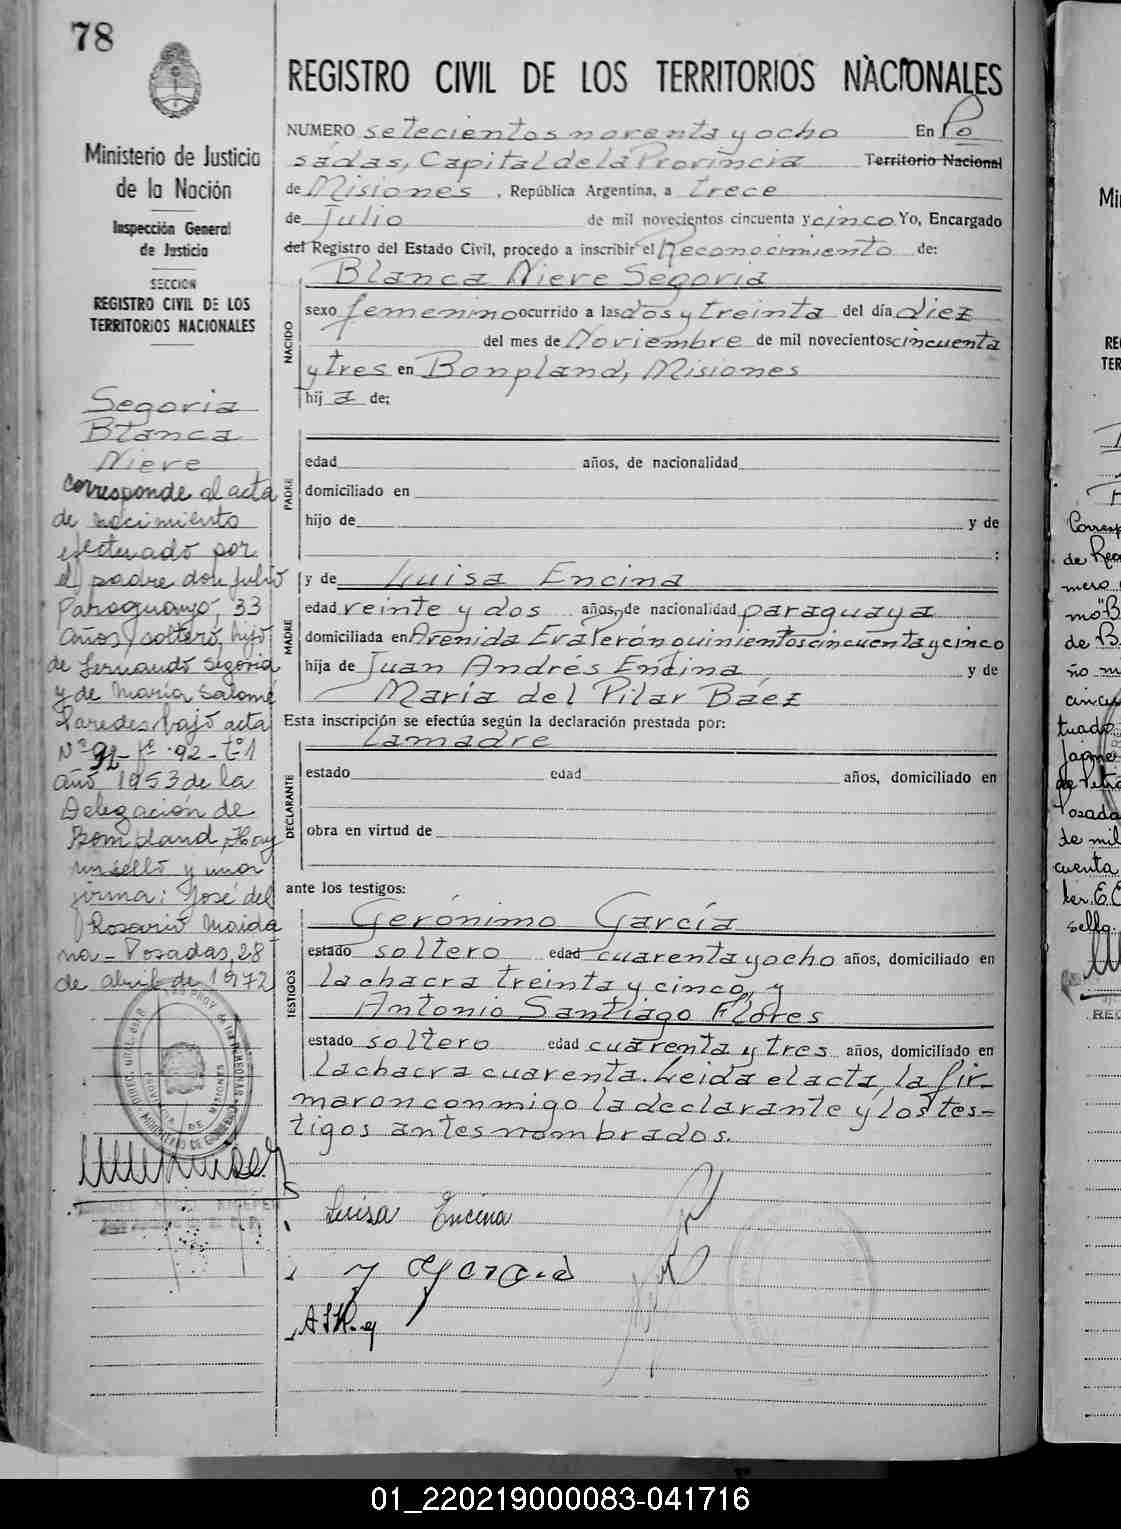 78
Ministerio de Justicia
de la Nación
Inspección General
de Justicia
SECCION
REGISTRO CIVIL DE LOS
TERRITORIOS NACIONALES
Segovia
Blanca
Nieve
Corresponde al acta
de nacimiento
efectuado por
el padre don Julio
Paraguayo, 33
años, soltero, hijo
de Fernando Segovia
y de María Salomé
Paredes, bajo acta
Nº 92 - Fº 92 - Tº 1
año 1953 de la
Delegación de
Bompland, Hay
un sello y una
firma: José del
Rosario Maida
na - Posadas, 28
de abril de 1972
REGISTRO CIVIL DE LOS TERRITORIOS NACIONALES
NUMERO setecientos noventa y ocho En Po
sadas, Capital de la Provincia Territorio Nacional
de Misiones, República Argentina, a trece
de Julio de mil novecientos cincuenta y cinco Yo, Encargado
del Registro del Estado Civil, procedo a inscribir el Reconocimiento de:
Blanca Nieve Segovia
NACIDO
sexo femenino ocurrido a las dos y treinta del día diez
del mes de Noviembre de mil novecientos cincuenta
y tres en Bonpland, Misiones
hij a de:
PADRE
edad años, de nacionalidad
domiciliado en
hijo de y de
;
MADRE
y de Luisa Encina
edad veinte y dos años, de nacionalidad paraguaya
domiciliada en Avenida Eva Perón quinientos cincuenta y cinco
hija de Juan Andrés Encina y de
María del Pilar Báez
Esta inscripción se efectúa según la declaración prestada por:
la madre
DECLARANTE
estado edad años, domiciliado en
obra en virtud de
ante los testigos:
TESTIGOS
Gerónimo García
estado soltero edad cuarenta y ocho años, domiciliado en
la chacra treinta y cinco, y
Antonio Santiago Flores
estado soltero edad cuarenta y tres años, domiciliado en
la chacra cuarenta. Leida el acta, la fir-
maron conmigo la declarante y los tes-
tigos antes nombrados.
Luisa Encina
01_220219000083-041716